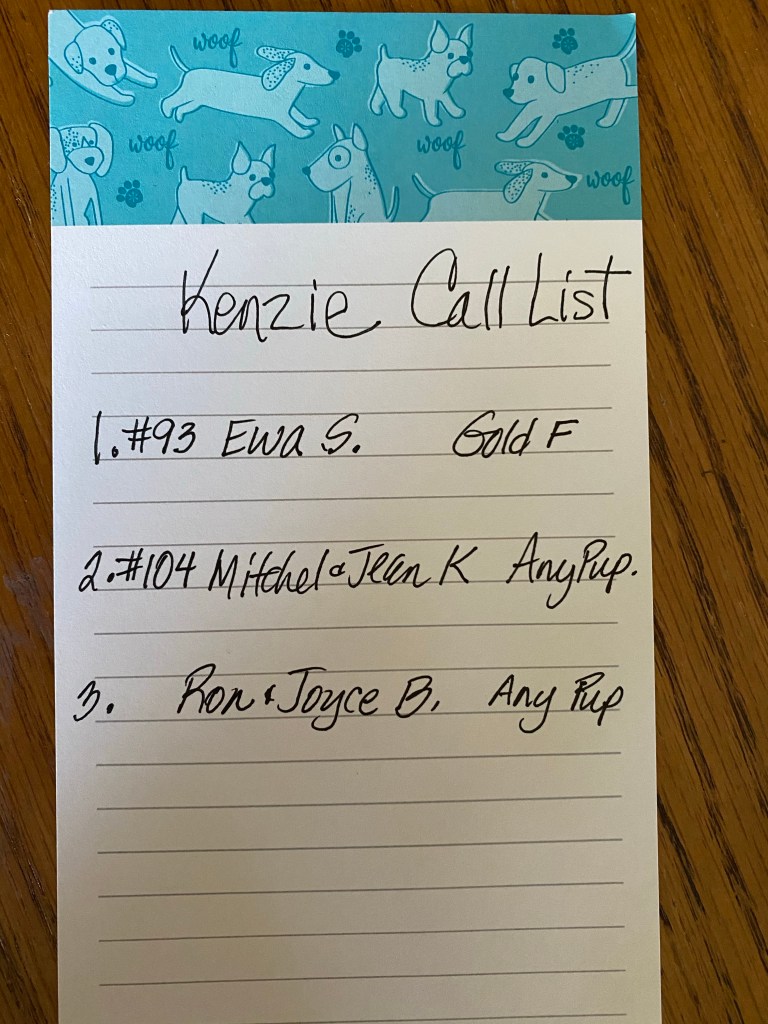 woof
woof woof
woof
Kenzie Call List
1. #93 Ewa S. Gold F
2. #104 Mitchel & Jean K Any Pup.
3. Ron & Joyce B. Any Pup